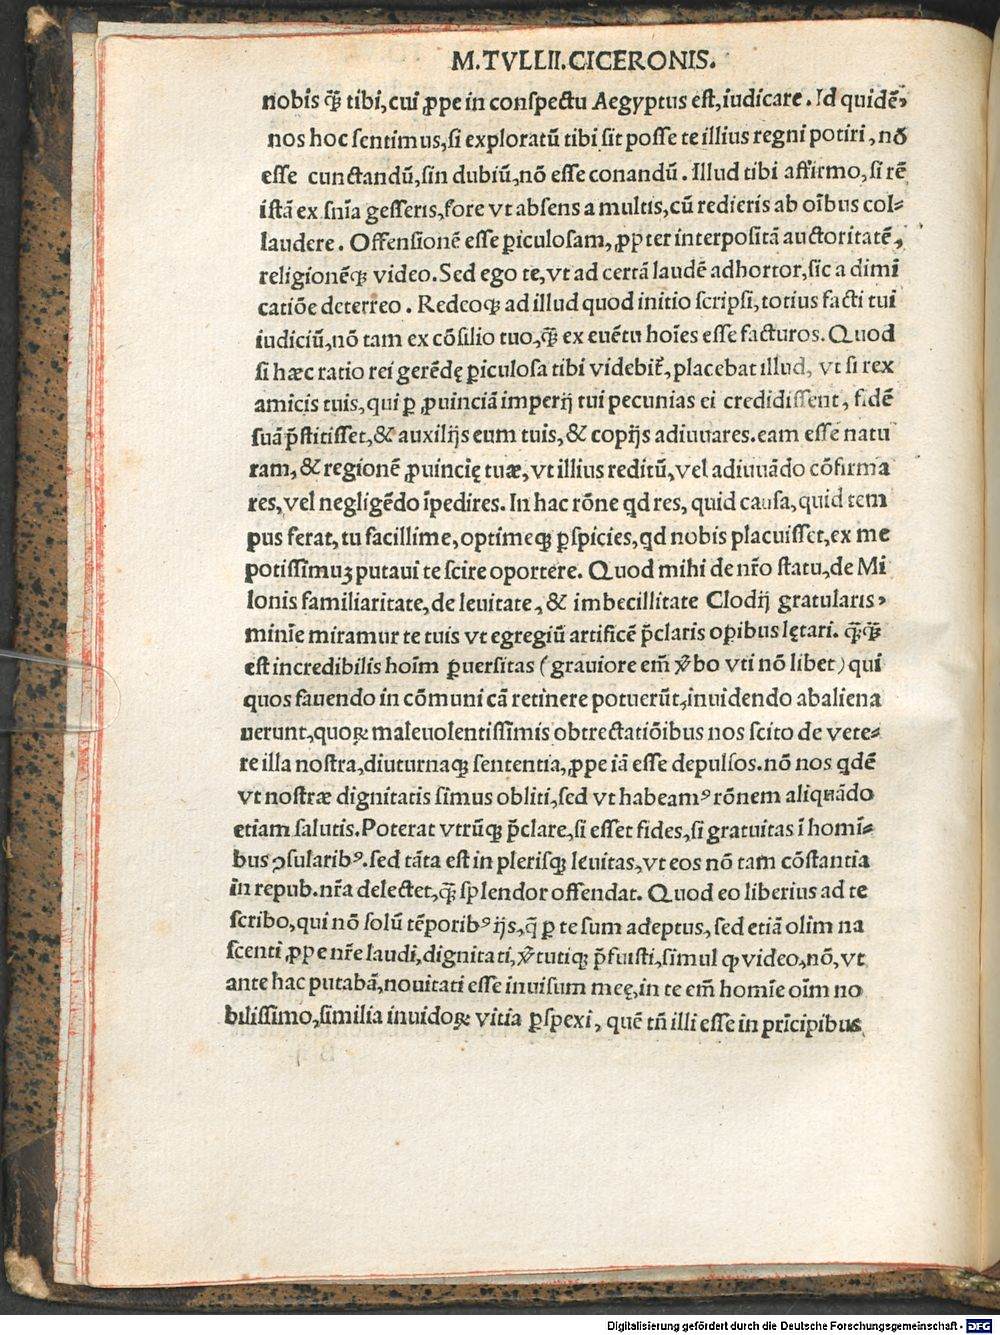 M.TVLLII.CICERONIS.
nobis q̃ȝ tibi, cui ꝓpe in conſpectu Aegyptus eſt, iudicare. Id quidē,
nos hoc ſentimus, ſi exploratū tibi ſit poſſe te illius regni potiri, nō
eſſe cunctandū, ſin dubiū, nō eſſe conandū. Illud tibi affirmo, ſi rē
iſtā ex ſnīa geſſeris, fore vt abſens a multis, cū redieris ab oībus col⸗
laudere. Offenſionē eſſe ꝑiculoſam, ꝓpter interpoſitā auctoritatē,
religionēqȝ video. Sed ego te, vt ad certā laudē adhortor, ſic a dimi
catiōe deterreo. Redeoqȝ ad illud quod initio ſcripſi, totius facti tui
iudiciū, nō tam ex cōſilio tuo, q̃ȝ ex euētu hoīes eſſe facturos. Quod
ſi hæc ratio rei gerēdę ꝑiculoſa tibi videbit̃, placebat illud, vt ſi rex
amicis tuis, qui ꝑ ꝓuinciā imperij tui pecunias ei credidiſſent, fidē
ſuā p̄ſtitiſſet, & auxilijs eum tuis, & copijs adiuuares. eam eſſe natu
ram, & regionē ꝓuincię tuæ, vt illius reditū, vel adiuuādo cōfirma
res, vel negligēdo īpedires. In hac rōne qd res, quid cauſa, quid tem
pus ferat, tu facillime, optimeqȝ ꝑſpicies, qd nobis placuiſſet, ex me
potiſſimuȝ putaui te ſcire oportere. Quod mihi de nr̄o ſtatu, de Mi
lonis familiaritate, de leuitate, & imbecillitate Clodij gratularis,
minīe miramur te tuis vt egregiū artificē p̄claris oꝑibus lętari. q̃ȝq̃ȝ
eſt incredibilis hoīm ꝑuerſitas (grauiore em̄ v̄bo vti nō libet) qui
quos fauendo in cōmuni cā retinere potuerūt, inuidendo abaliena
uerunt, quoꝝ maleuolentiſſimis obtrectatiōibus nos ſcito de vete⸗
re illa noſtra, diuturnaqȝ ſententia, ꝓpe iā eſſe depulſos. nō nos qdē
vt noſtræ dignitatis ſimus obliti, ſed vt habeamꝰ rōnem aliquādo
etiam ſalutis. Poterat vtrūqȝ p̄clare, ſi eſſet fides, ſi gratuitas ī homī⸗
bus ꝯſularibꝰ. ſed tāta eſt in plerisqȝ leuitas, vt eos nō tam cōſtantia
in repub. nr̄a delectet, q̃ȝ ſplendor offendat. Quod eo liberius ad te
ſcribo, qui nō ſolū tēporibꝰ ijs, q̄ ꝑ te ſum adeptus, ſed etiā olim na
ſcenti ꝓpe nr̄e laudi, dignitati, v̄tutiqȝ p̄fuiſti, ſimul ꝙ video, nō, vt
ante hac putabā, nouitati eſſe inuiſum meę, in te em̄ homīe oīm no
biliſſimo, ſimilia inuidoꝝ vitia ꝑſpexi, quē tn̄ illi eſſe in prīcipibus
Digitalisierung gefördert durch die Deutsche Forschungsgemeinschaft - DFG